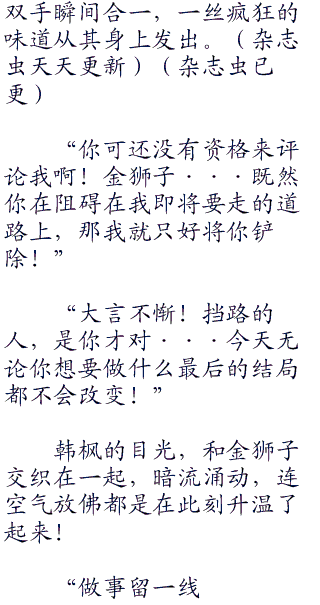 双手瞬间合一，一丝疯狂的
味道从其身上发出。（杂志
虫天天更新）（杂志虫已
更）
“你可还没有资格来评
论我啊！金狮子···既然
你在阻碍在我即将要走的道
路上，那我就只好将你铲
除！”
“大言不惭！挡路的
人，是你才对···今天无
论你想要做什么最后的结局
都不会改变！”
韩枫的目光，和金狮子
交织在一起，暗流涌动，连
空气放佛都是在此刻升温了
起来！
“做事留一线